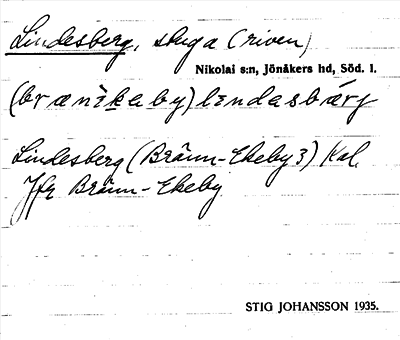 Lindesberg, stuga (riven)
Nikolai s:n, Jönåkers hd, Söd. l.
(brænèkeby) lindasbárj
Lindesberg (Bränn-Ekeby 3) Kal.
Jfr Bränn-Ekeby
STIG JOHANSSON 1935.